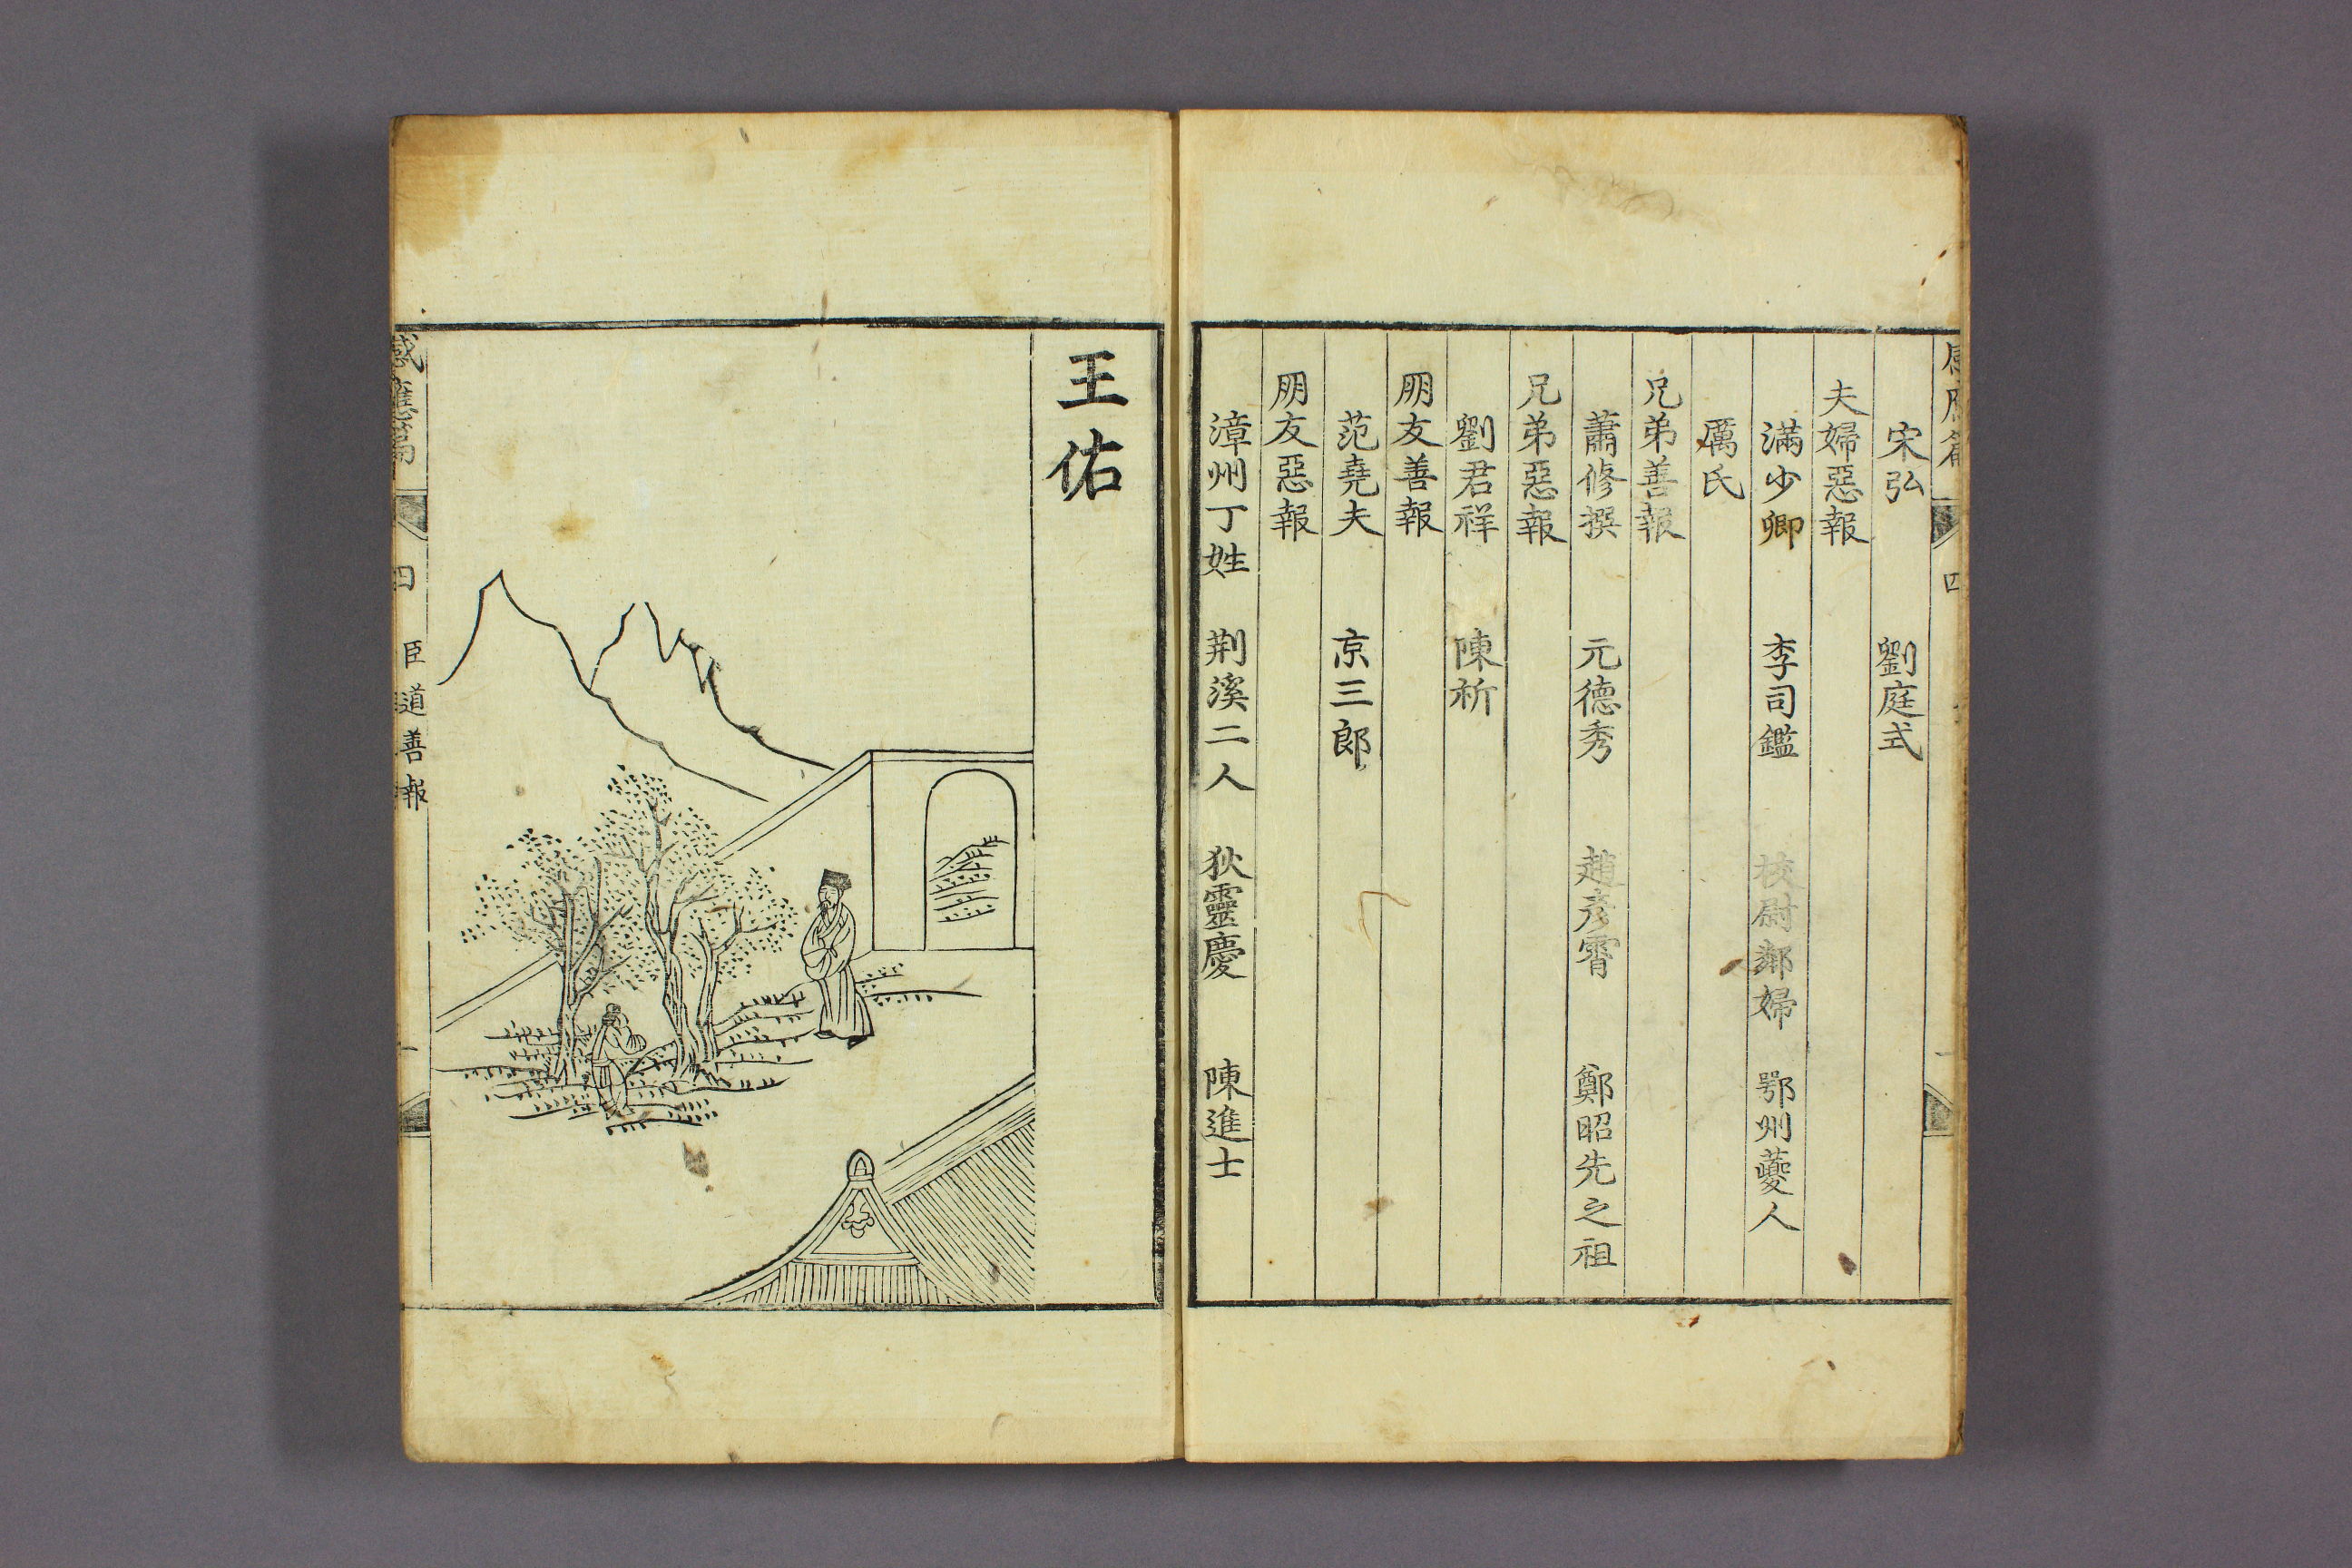 宋弘 劉庭式
夫婦惡報
滿少卿 李司鑑 校尉鄰婦 鄂州夔人
厲氏
兄弟善報
蕭修撰 元德秀 趙彥霄 鄭昭先之祖
兄弟惡報
劉君祥 陳祈
朋友善報
范堯夫 京三郎
朋友惡報
漳州丁姓 荆溪二人 狄靈慶 陳進士
王佑
感應篇 四 臣道善報 一